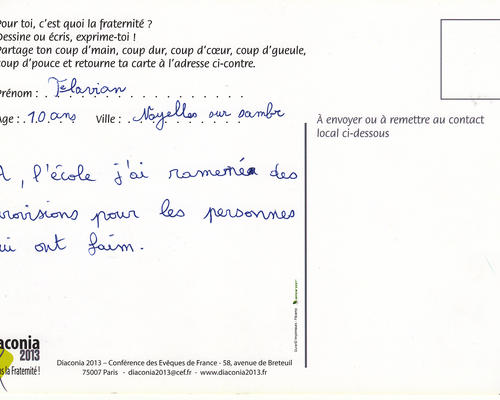 Pour toi, c'est quoi la fraternité ?
Dessine ou écris, exprime-toi !
Partage ton coup d'main, coup dur, coup d'cœur, coup d'gueule,
coup d'pouce et retourne ta carte à l'adresse ci-contre.
Prénom : Flavian
Age : 10 ans Ville : Noyelles sur sambre
À envoyer ou à remettre au contact
local ci-dessous
A, l'école j'ai ramené des
provisions pour les personnes
qui ont faim.
Diaconia
2013
la Fraternité !
Diaconia 2013 – Conférence des Evêques de France - 58, avenue de Breteuil
75007 Paris - diaconia2013@cef.fr - www.diaconia2013.fr